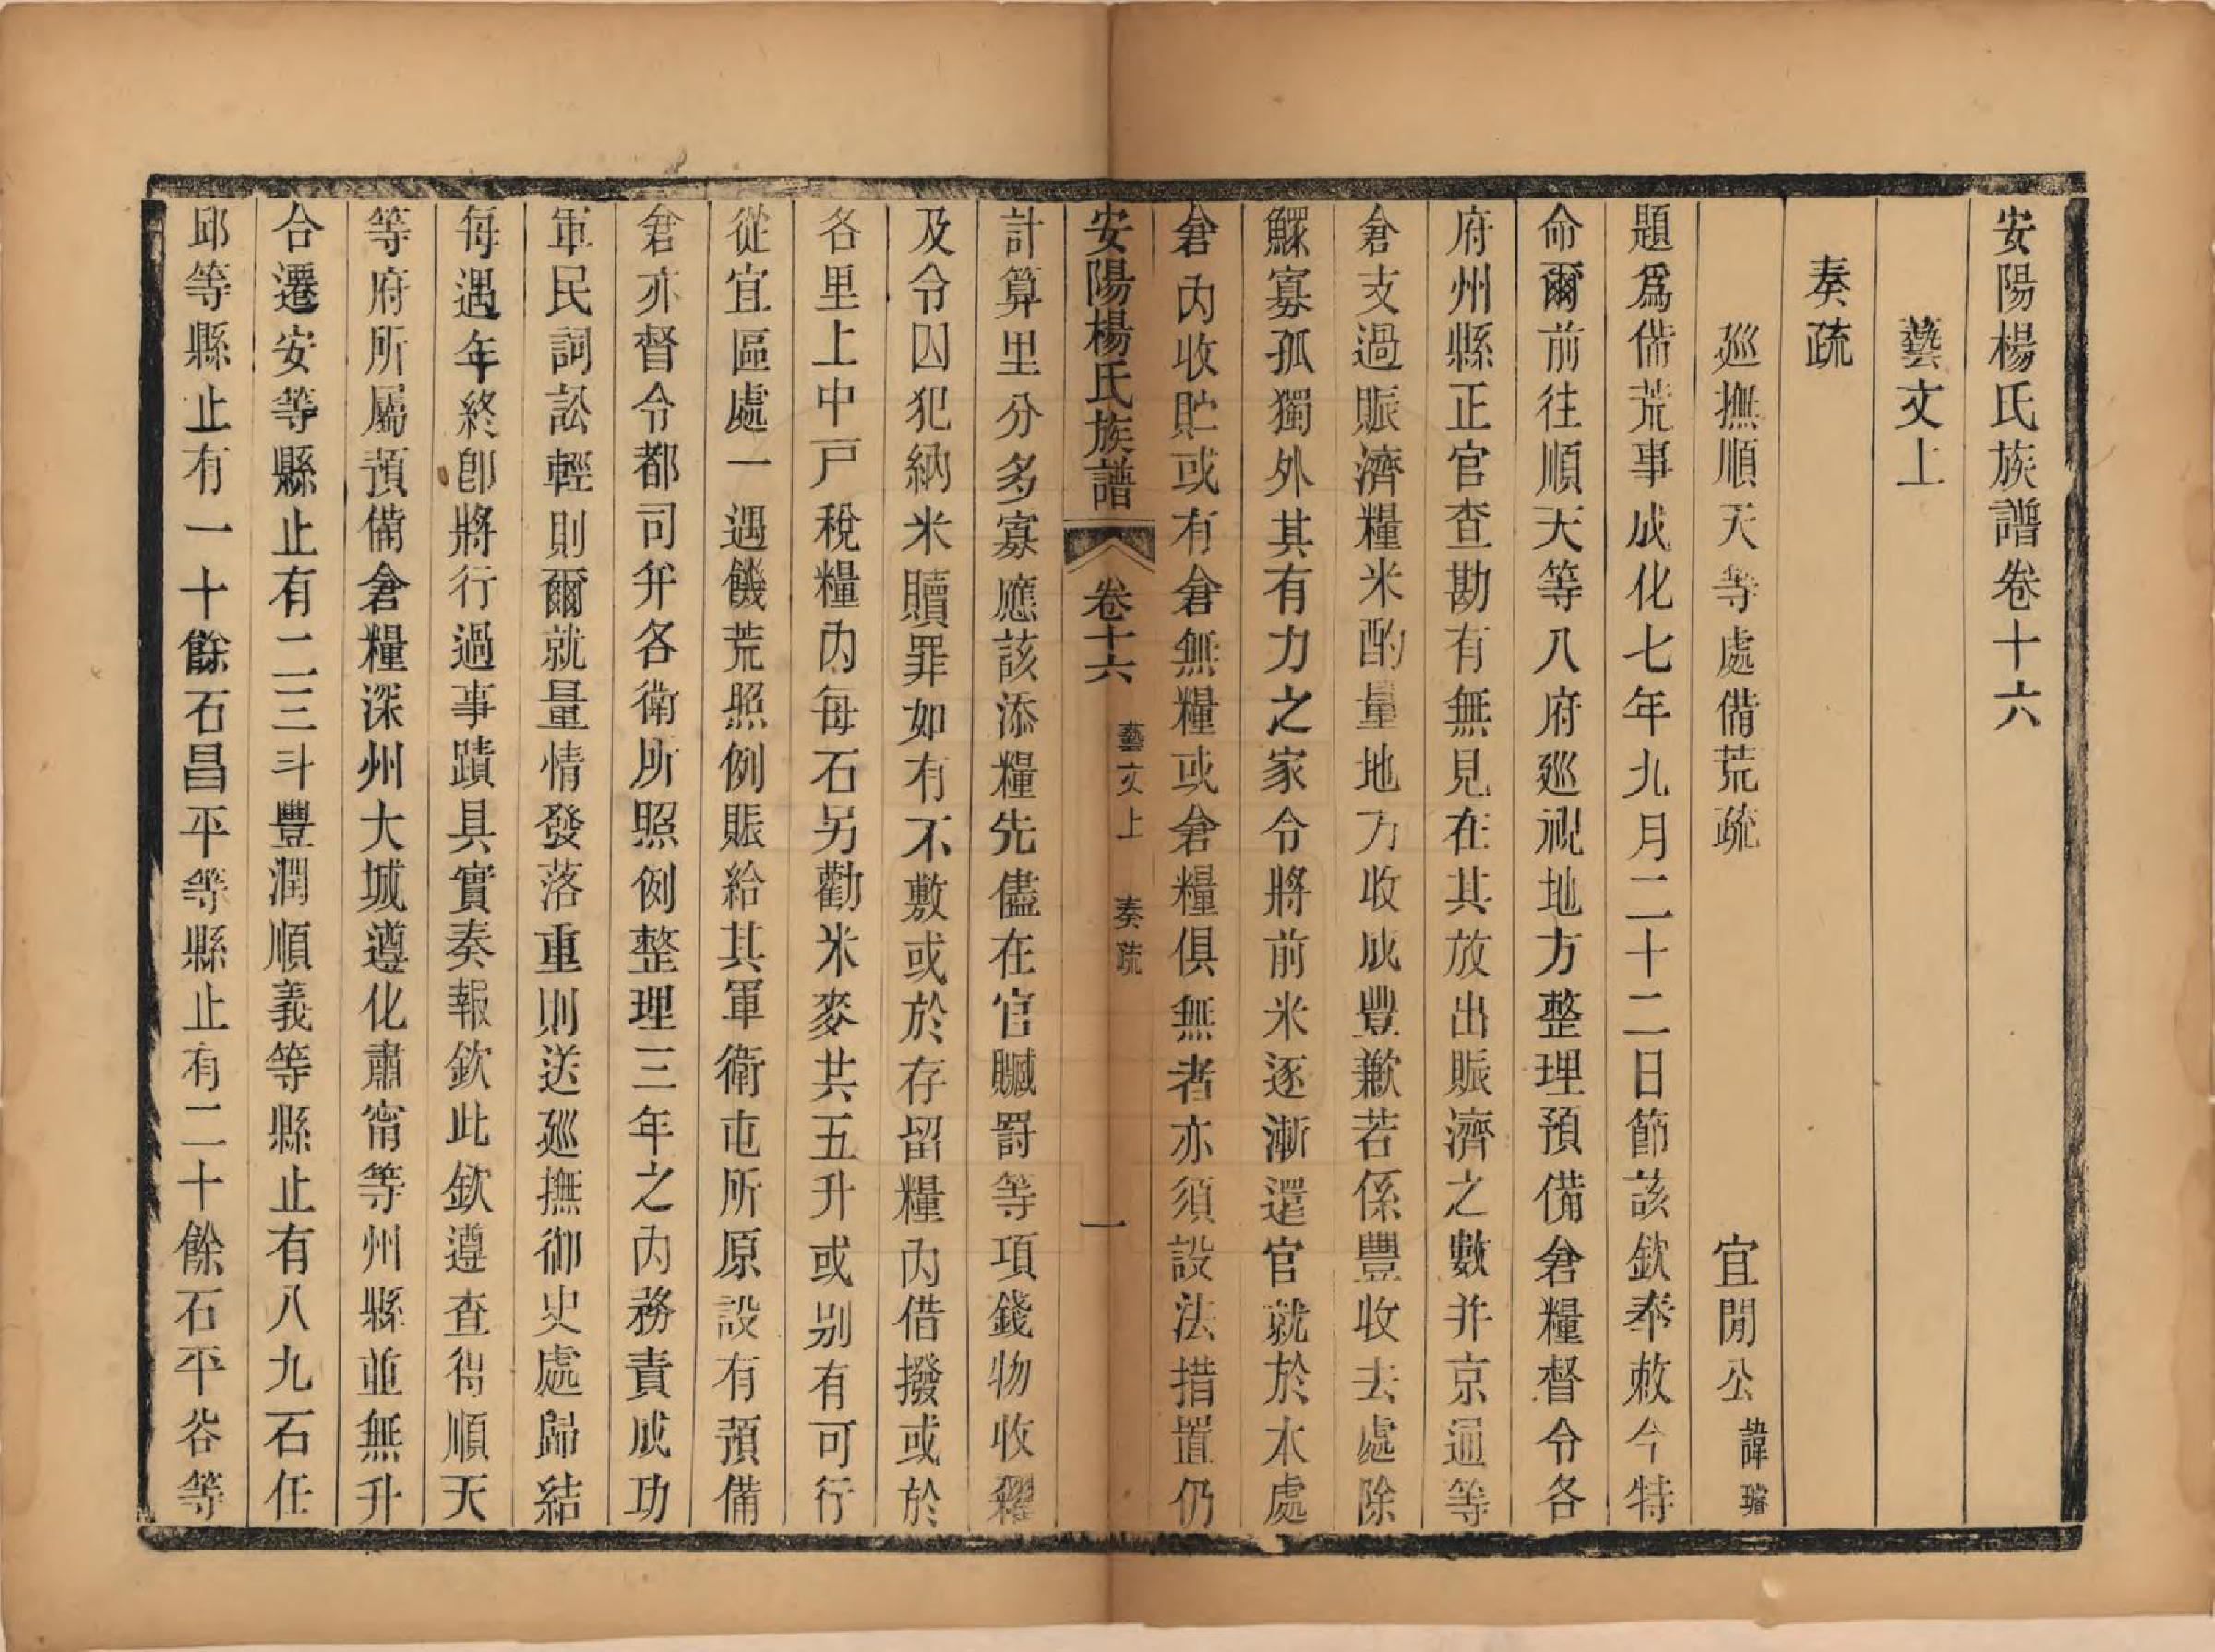 安陽楊氏族譜卷十六
藝文上
奏疏
廵撫順天等處備荒疏　宜閒公諱璿
題爲備荒事成化七年九月二十二日節該欽奉敕今特
命爾前往順天等八府廵視地方整理預備倉糧督令各
府州縣正官查勘有無見在其放出賑濟之數并京通等
倉支過賑濟糧米酌量地方收成豐歉若係豐收去處除
鰥寡孤獨外其有力之家令將前米逐漸還官就於本處
倉內收貯或有倉無糧或倉糧俱無者亦須設法措置仍
安陽楊氏族譜　卷十六　藝文上　奏疏　一
計算里分多寡應該添糧先儘在官贓罸等項錢物收糴
及令囚犯納米贖罪如有不敷或於存留糧內借撥或於
各里上中戸稅糧內每石另勸米麥共五升或别有可行
從宜區處一遇饑荒照例賑給其軍衛屯所原設有預備
倉亦督令都司并各衛所照例整理三年之內務責成功
軍民詞訟輕則爾就量情發落重則送廵撫御史處歸結
每遇年終卽將行過事蹟具實奏報欽此欽遵查得順天
等府所屬預備倉糧深州大城遵化肅甯等州縣並無升
合遷安等縣止有二三斗豐潤順義等縣止有八九石任
邱等縣止有一十餘石昌平等縣止有二十餘石平谷等